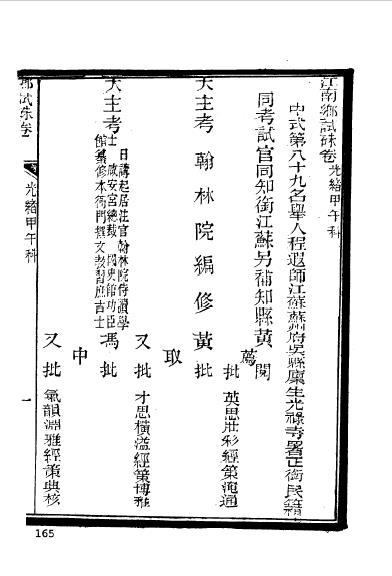 江南鄉試硃卷 光緒甲午科
中式第八十九名舉人程遐師江蘇蘇州府吳縣廩生光祿寺署正銜民籍
同考試官同知銜江蘇另補知縣黃 閱
薦
批 英思壯彩經策淹通
大主考 翰林院編修黃 批
取
又批 才思橫溢經策博雅
大主考
日講起居注官翰林院侍讀學
士咸安宮總裁國史館功臣
館纂修本衙門撰文教習庶吉士
馮 批
中
又批 氣韻淵雅經策典核
鄉試硃卷
光緒甲午科
一
165